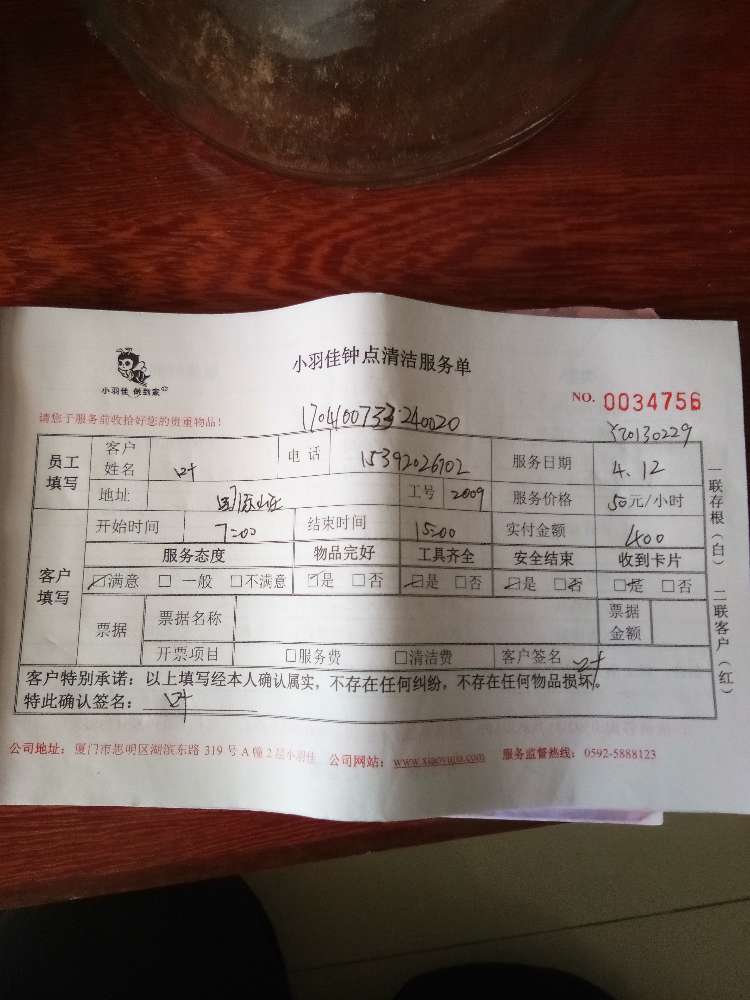 小羽佳 俩到家
小羽佳钟点清洁服务单
NO. 0034756
请您于服务前收拾好您的贵重物品!
1704100733240020
Y20130229
员工填写 客户姓名 叶 电话 15392026702 服务日期 4.12
地址 工号 2009 服务价格 50元/小时
客户填写 开始时间 7:00 结束时间 15:00 实付金额 400
服务态度 物品完好 工具齐全 安全结束 收到卡片
☑满意 □一般 □不满意 ☑是 □否 ☑是 □否 ☑是 □否 □是 □否
票据 票据名称 票据金额
开票项目 □服务费 □清洁费 客户签名 叶
客户特别承诺:以上填写经本人确认属实,不存在任何纠纷,不存在任何物品损坏。
特此确认签名: 叶
一联存根(白) 二联客户(红)
公司地址:厦门市思明区湖滨东路 319 号 A 幢 2 层小羽佳 公司网站:www.xiaoyujia.com 服务监督热线:0592-5888123